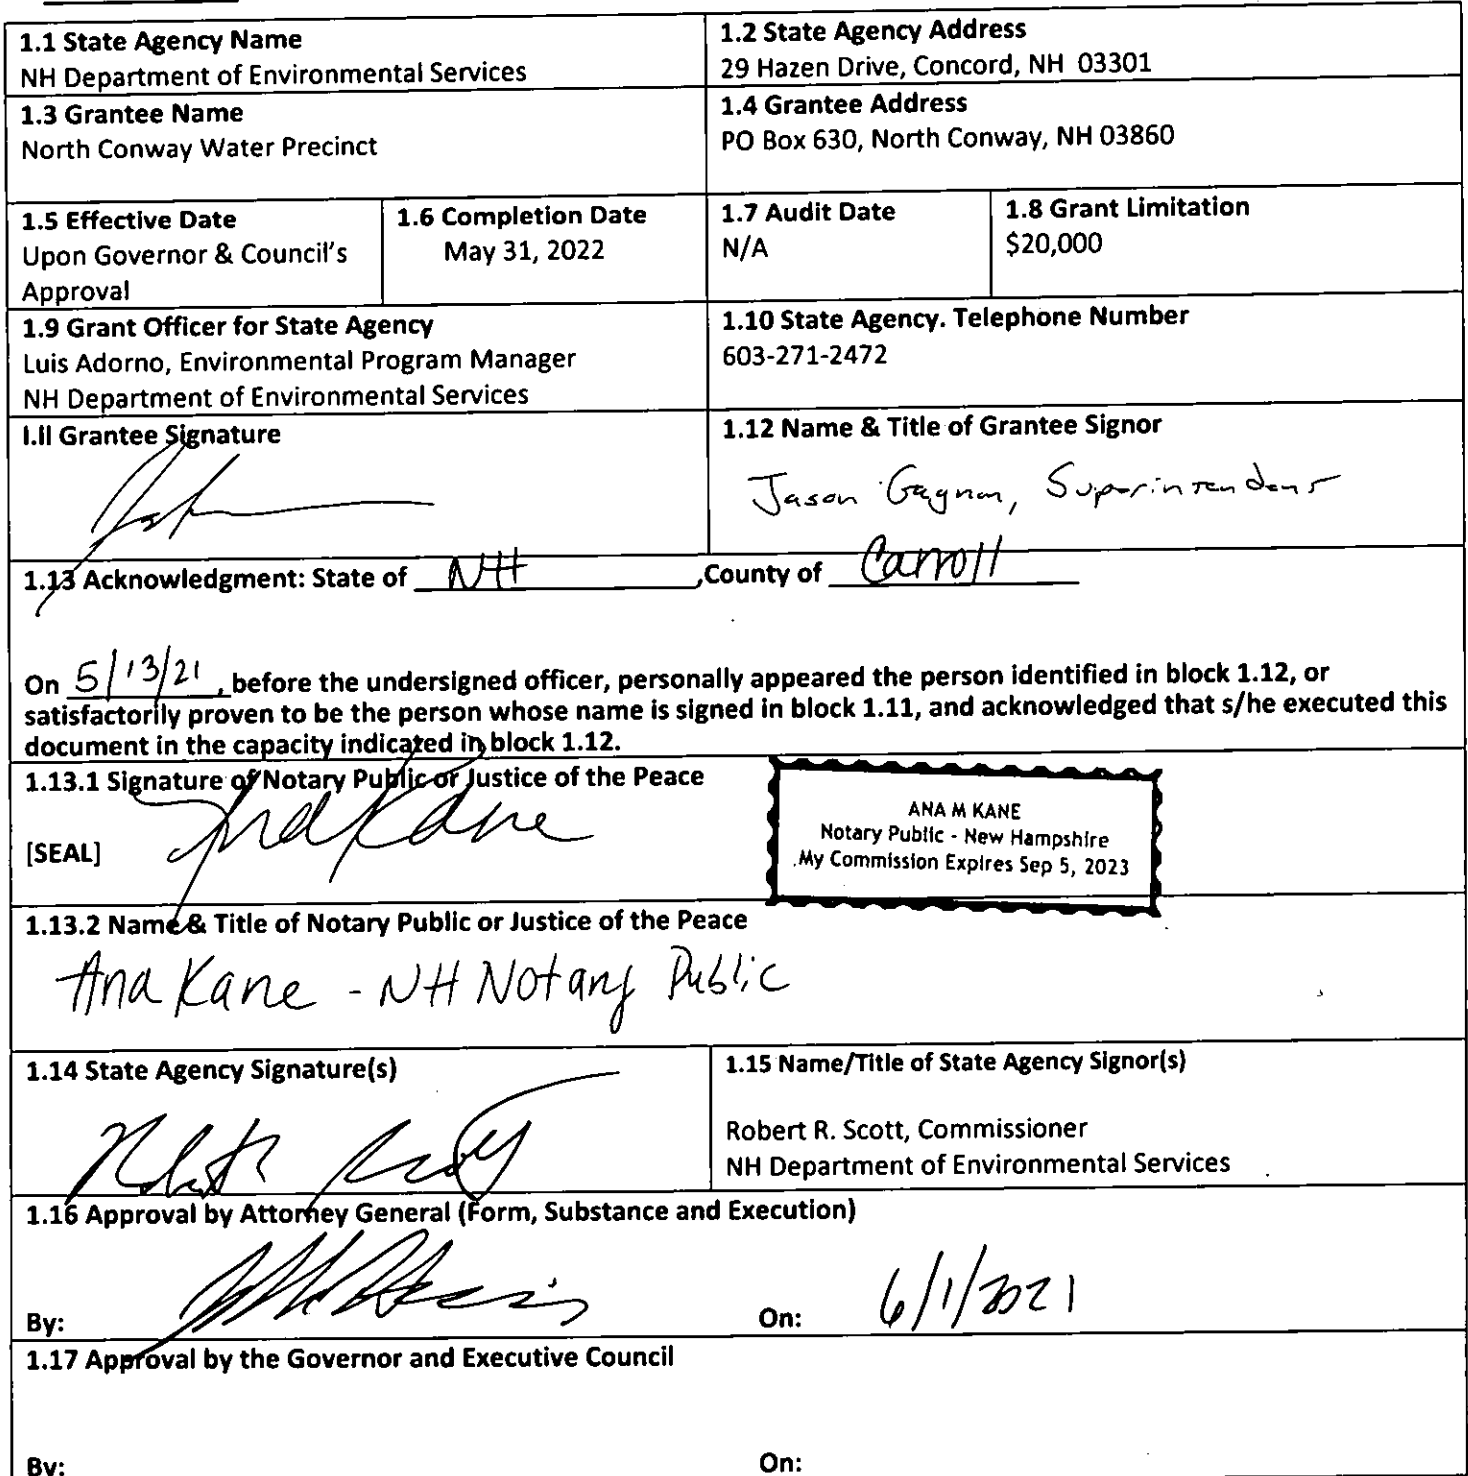 1.1 State Agency Name
NH Department of Environmental Services
1.2 State Agency Address
29 Hazen Drive, Concord, NH 03301
1.3 Grantee Name
North Conway Water Precinct
1.4 Grantee Address
PO Box 630, North Conway, NH 03860
1.5 Effective Date
Upon Governor & Council's
Approval
1.6 Completion Date
May 31, 2022
1.7 Audit Date
N/A
1.8 Grant Limitation
$20,000
1.9 Grant Officer for State Agency
Luis Adorno, Environmental Program Manager
NH Department of Environmental Services
1.10 State Agency. Telephone Number
603-271-2472
I.II Grantee Signature
1.12 Name & Title of Grantee Signor
Jason Gagnon, Superintendent
1.13 Acknowledgment: State of NH ,County of Carroll
On 5/13/21 , before the undersigned officer, personally appeared the person identified in block 1.12, or
satisfactorily proven to be the person whose name is signed in block 1.11, and acknowledged that s/he executed this
document in the capacity indicated in block 1.12.
1.13.1 Signature of Notary Public or Justice of the Peace
Ana Kane
[SEAL]
ANA M KANE
Notary Public - New Hampshire
My Commission Expires Sep 5, 2023
1.13.2 Name & Title of Notary Public or Justice of the Peace
Ana Kane - NH Notary Public
1.14 State Agency Signature(s)
1.15 Name/Title of State Agency Signor(s)
Robert R. Scott, Commissioner
NH Department of Environmental Services
1.16 Approval by Attorney General (Form, Substance and Execution)
By: On: 6/1/2021
1.17 Approval by the Governor and Executive Council
By: On: